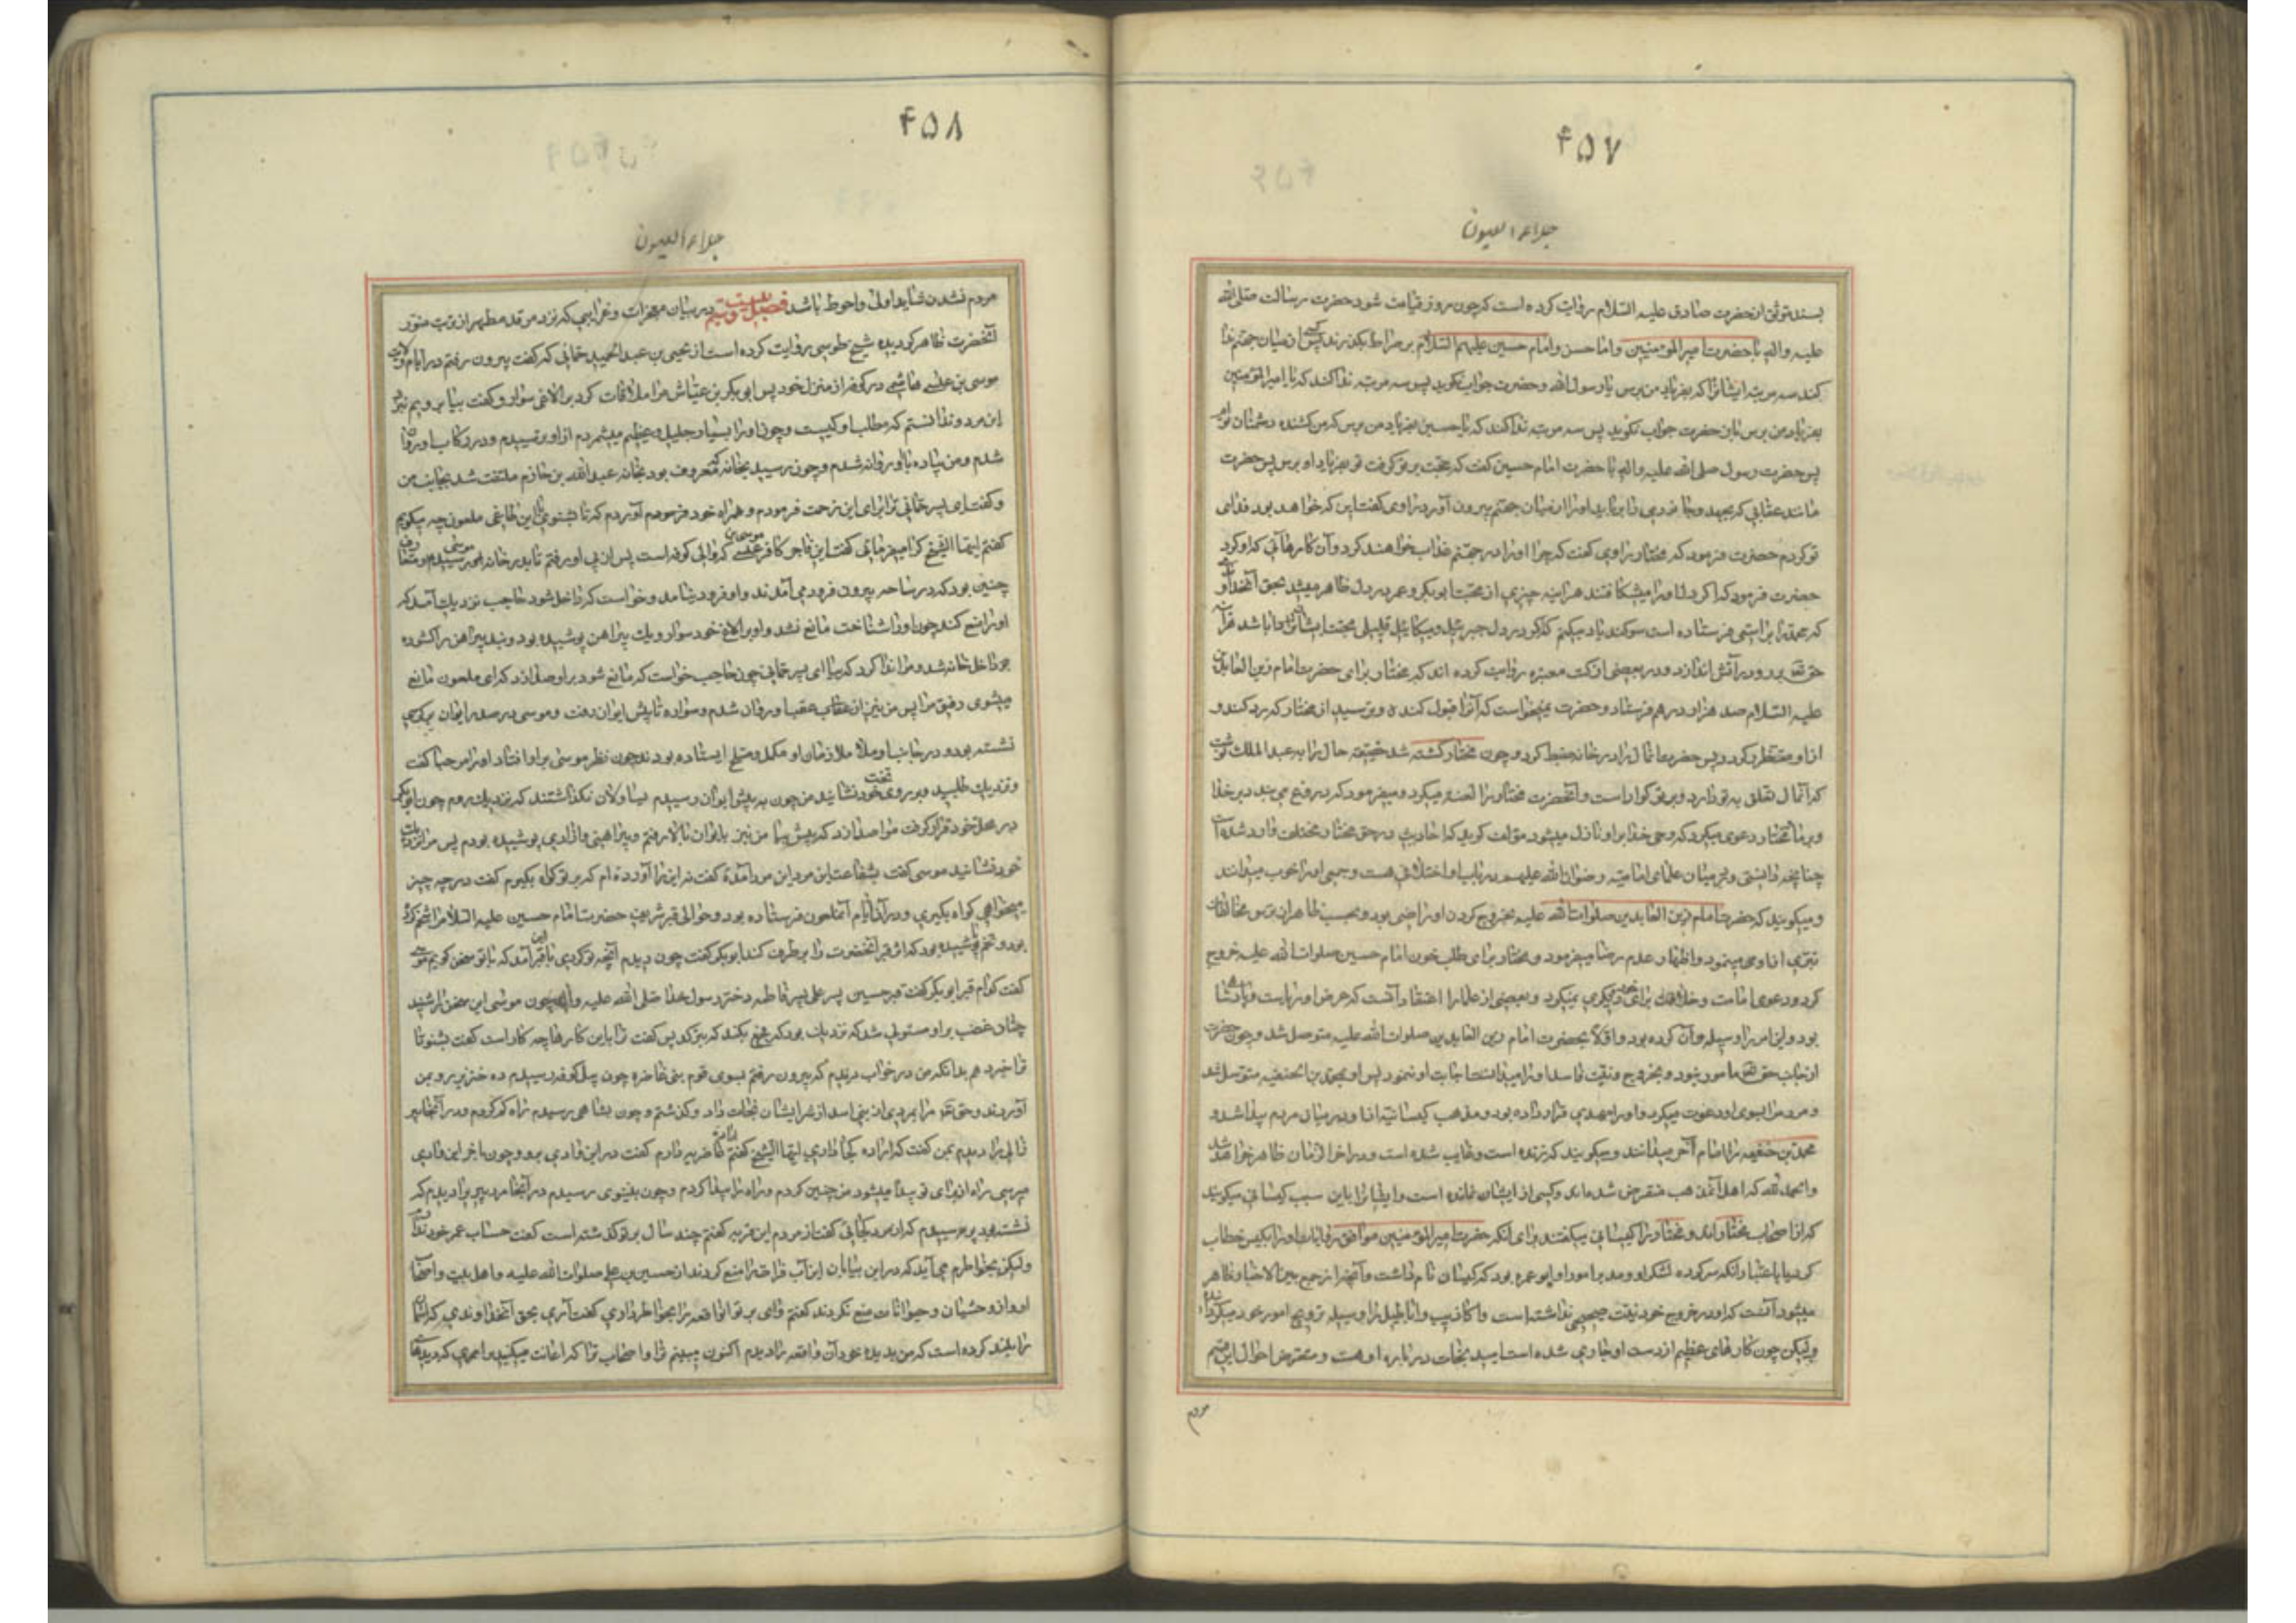 ۴۵۷
جلاء العیون
بسند موثق از حضرت صادق علیه السّلام روایت کرده است که چون روز قیامت شود حضرت رسالت صلی الله
علیه واله با حضرت امیر المؤمنین و امام حسن و امام حسین علیهم السّلام بر صراط بگذرند پس کسی از میان جهنم ندا
کند سه مرتبه ایشانرا که بفریاد من برس یا رسول الله و حضرت جواب نگوید پس سه مرتبه ندا کند که یا امیر المؤمنین
بفریاد من برس باین حضرت جواب نگوید پس سه مرتبه ندا کند که یا حسین بفریاد من برس که من کشنده دشمنان توام
پس حضرت رسول صلی الله علیه واله با حضرت امام حسین گفت که حجّت بر تو گرفت تو بفریاد او برس پس حضرت
مانند عقابی که بجهد و جانوری را برباید او را از میان جهنم بیرون آورد راوی گفت این که خواهد بود فدای
تو گردم حضرت فرمود که مختار راوی گفت که چرا او را در جهنم عذاب خواهند کرد و آن کارها که او کرد
حضرت فرمود که اگر دل او را میشکافتند هر اینه چیزی از محبّت ابوبکر و عمر در دل ظاهر میشد بحق آنخداوندی
که محمد را براستی فرستاده است سوگند یاد میکنم که اگر در دل جبرئیل و میکائیل قلیلی محبت ایشان باشد هر آینه
حق تعالی برو در آتش اندازد و در بعضی از کتب معتبره روایت کرده اند که مختار برای حضرت امام زین العابدین
علیه السّلام صد هزار درهم فرستاد و حضرت نمیخواست که آنرا قبول کند و ترسید از مختار که رد کند و
از او متضرر گردد پس حضرت انمال را در خانه ضبط کرد و چون مختار کشته شد حقیقت حال را به عبد الملک نوشت
که آنمال تعلق به تو دارد و بر تو گوارا است و آنحضرت مختار را لعنت میکرد و میفرمود که دروغ می بندد بر خدا
و بر ما مختار دعوی میکرد که وحی خدا بر او نازل میشود مؤلف گوید که احادیث در حق مختار مختلف وارد شده است
چنانچه دانستی و در میان علمای امامیّه رضوان الله علیهم در باب او اختلافی هست و جمعی او را خوب میدانند
و میگویند که حضرت امام زین العابدین صلوات الله علیه بخروج کردن او راضی بود و بحسب ظاهر از ترس مخالفان
تبرّی از او می نمود و اظهار عدم رضا میفرمود و مختار برای طلب خون امام حسین صلوات الله علیه خروج
کرد و دعوی امامت و خلافت برای خود و دیگری نمیکرد و بعضی از علما را اعتقاد آنست که غرض او ریاست و پادشاهی
بود و این امر را وسیله آن کرده بود و اوّلا بحضرت امام زین العابدین صلوات الله علیه متوصل شد و چون حضرت
از جانب حق تعالی مامور نبود بخروج و نیّت فاسد او را میدانست اجابت او ننمود پس او بمحمد بن الحنفیه متوسل شد
و مردم را بسوی او دعوت میکرد و او را مهدی قرار داده بود و مذهب کیسانیّه از او در میان مردم پیدا شد و
محمد بن حنفیه را امام آخر میدانند و میگویند که زنده است و غایب شده است و در اخر الزمان ظاهر خواهد شد
و الحمد لله که اهل آنمذهب منقرض شده اند و کسی از ایشان نمانده است و ایشانرا باین سبب کیسانی میگویند
که از اصحاب مختار اند و مختار را کیسانی میگفتند برای آنکه حضرت امیر المؤمنین موافق روایات او را بکیس خطاب
کرد یا باعتبار آنکه سرکرده لشکر او و مدبر امور او ابو عمره بود که کیسان نام داشت و آنچه از جمع بین الاخبار ظاهر
میشود آنست که او در خروج خود نیّت صحیحی نداشته است و اکاذیب و اباطیل را وسیله ترویج امور خود میکرده
ولیکن چون کارهای عظیم از دست او جاری شده است امید نجات در باره او هست و متعرض احوال این قسم
مردم
۴۵۸
جلاء العیون
مردم نشدن شاید اولی و احوط باشد فصل بیست و سیم در بیان معجزات و غرایبی که نزد مرقد مطهر از تربت منور
آنحضرت ظاهر گردیده شیخ طوسی روایت کرده است از یحیی بن عبد الحمید حمانی که گفت بیرون رفتم در ایام ولایت
موسی بن عیسی هاشمی در کوفه از منزل خود پس ابوبکر بن عیاش مرا ملاقات کرد بر الاغی سوار و گفت بیا برویم نزد
این مرد و ندانستم که مطلب او کیست و چون او را بسیار جلیل و عظیم میشمردم از او نپرسیدم و در رکاب او روان
شدم و من پیاده با او روانه شدم و چون رسید بخانه که معروف بود بخانه عبد الله بن خازم ملتفت شد بجانب من
و گفت ای پسر حمانی ترا برای این زحمت فرمودم و همراه خود آوردم که تا بشنوی باین طاغی ملعون چه میگویم
گفتم ایها الشیخ کرا میفرمائی گفت این فاجر کافر موسی بن عیسی که والی کوفه است پس از پی او رفتم تا بدر خانه موسی رسیدم و متعارف
چنین بود که در ساحه بیرون فرود می آمدند و او فرود نیامد و خواست که داخل شود حاجب نزدیک آمد که
او را منع کند چون او را شناخت مانع نشد و او بر الاغ خود سوار و یک پیراهن پوشیده بود و بند پیراهن را گشوده
بود داخل خانه شد و مرا ندا کرد که بیا ای پسر حمانی چون حاجب خواست که مانع شود بر او صدا زد که ای ملعون مانع
میشوی رفیق مرا پس من نیز از عقب او روان شدم و سواره تا پیش ایوان رفت و موسی در صدر ایوان بر کرسی
نشسته بود و در جانب او ملازمان او مکمل و مسلح ایستاده بودند چون نظر موسی بر او افتاد او را مرحبا گفت
و نزدیک طلبید و بر روی تخت خود نشانید من چون به پیش ایوان رسیدم یساولان نگذاشتند که نزدیک بروم چون ابوبکر
در محل خود قرار گرفت مرا صدا زد که پیش بیا من نیز بایوان بالا رفتم و پیراهنی و ازاری پوشیده بودم پس مرا نزدیک
خود نشانید موسی گفت بشفاعت این مرد آمدهٔ گفت نه این را آورده ام که بر تو گواه بگیرم گفت در چه چیز
میخواهی گواه بگیری و در آن ایام آنملعون فرستاده بود و حوالی قبر شریف حضرت امام حسین علیه السّلام را شخم کرده
بود و تخم پاشیده بود که اثر قبر آنحضرت را برطرف کند ابوبکر گفت چون دیدم آنچه تو کردی با این قبر آمدم که با تو سخن گویم موسی
گفت کدام قبر ابوبکر گفت قبر حسین پسر علی پسر فاطمه دختر رسول خدا صلی الله علیه واله چون موسی این سخن را شنید
چنان غضب بر او مستولی شد که نزدیک بود که بترکد پس گفت ترا باین کارها چه کار است گفت بشنو تا
ترا خبر دهم بدانکه من در خواب دیدم که بیرون رفتم بسوی قوم بنی غاضره چون بپل کوفه رسیدم ده خنزیر رو بمن
آوردند و حق تعالی مرا بمردی از بنی اسد از شر ایشان نجات داد و گذشتم و چون بشاهی رسیدم راه گم کردم و در آنجا پیر
زالی را دیدم بمن گفت که اراده کجا داری ایها الشیخ گفتم اراده غاضریه دارم گفت در این وادی برو و چون باخر این وادی
میرسی راه از برای تو پیدا میشود من چنین کردم و راه را پیدا کردم و چون بنینوی رسیدم در آنجا مرد پیری را دیدم که
نشسته بود پرسیدم که از مردم کجائی گفت از مردم این قریه گفتم چند سال بر تو گذشته است گفت حساب عمر خود ندارم
ولیکن بخاطرم می آید که در این بیابان این آب فرات را منع کردند از حسین بن علی صلوات الله علیه و اهل بیت و اصحاب
او و از وحشیان و حیوانات منع نکردند گفتم وای بر تو آنواقعه را بخاطر داری گفت آری بحق آنخداوندی که آسمان
را بلند کرده است که من بدیده خود آن واقعه را دیدم اکنون میبینم ترا و اصحاب ترا که اعانت میکنید بر امری که دیده‌ها